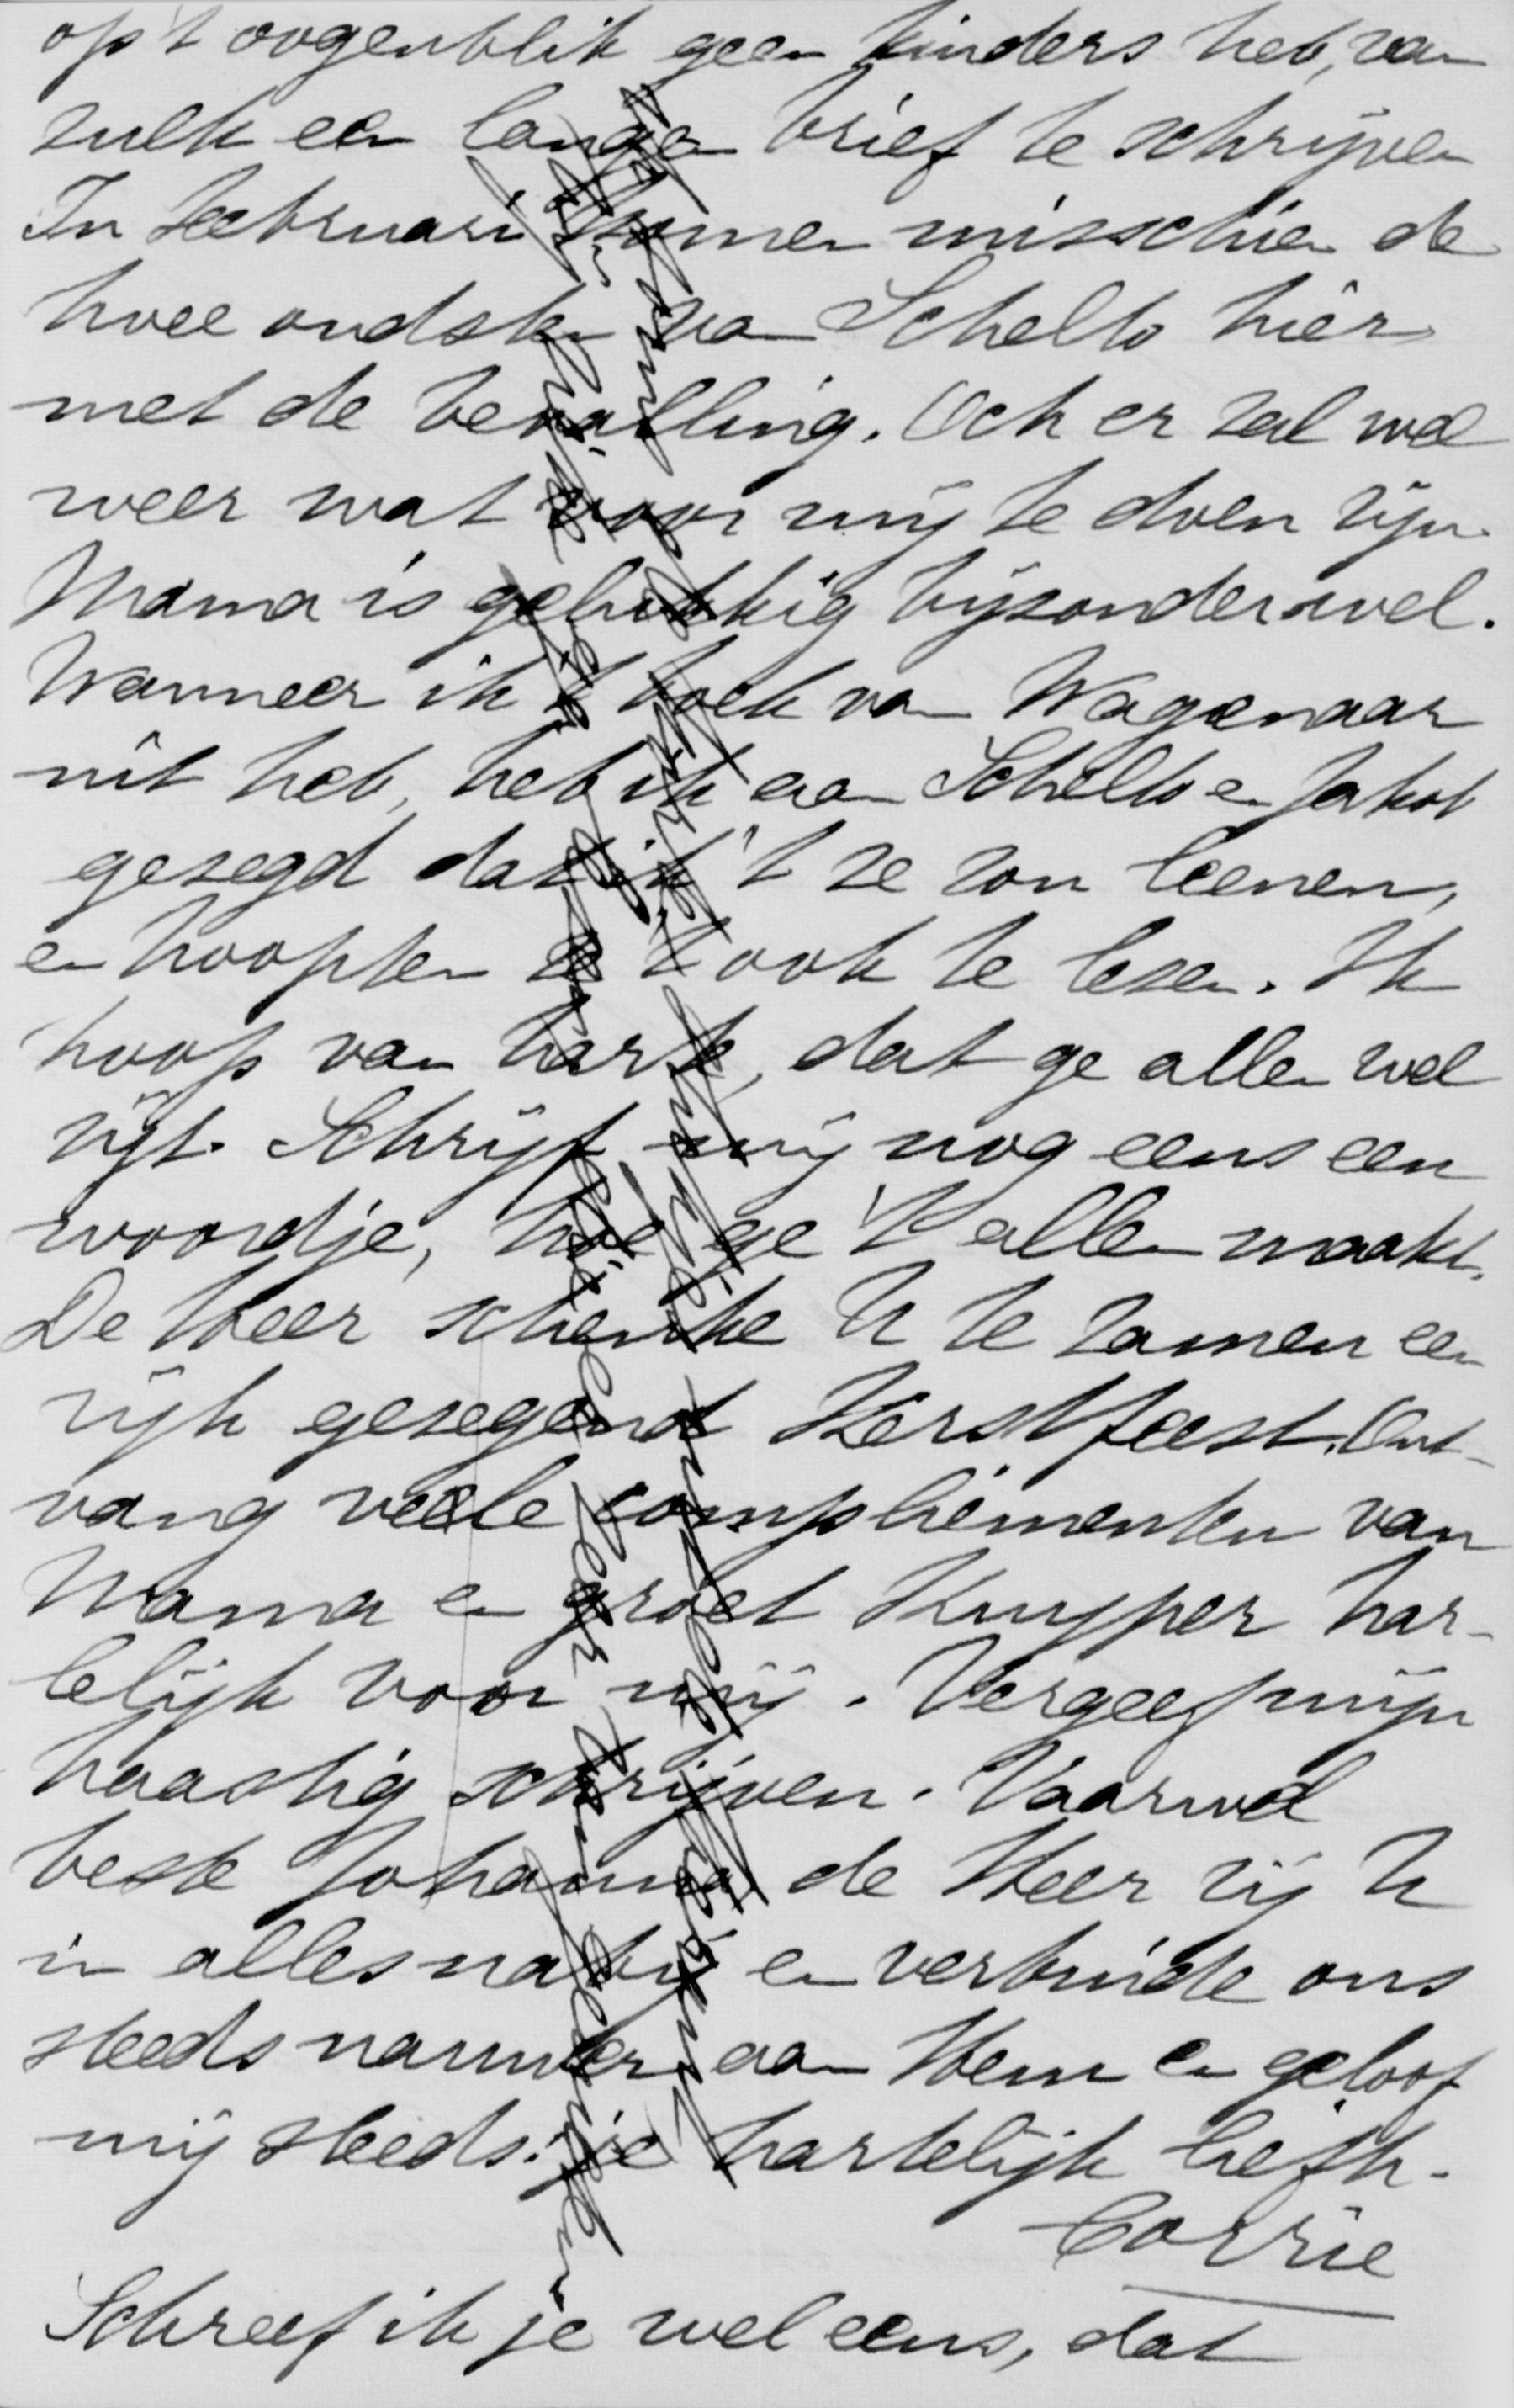 op 't oogenblik geen kinders heb, van
zulk een langen brief te schrijven
In Februari komen misschien de
twee oudsten van Schelto hier
met de bevalling. Och er zal wel
weer wat voor mij te doen zijn.
Mama is gelukkig bijzonder wel.
Wanneer ik 't boek van Wagenaar
uit heb, heb ik aan Schelto en Jakob
gezegd dat ik 't ze zou leenen,
en hoopten ze 't ook te lezen. Ik
hoop van harte, dat ge allen wel
zijt. Schrijf mij nog eens een
woordje, hoe ge 't allen maakt.
De Heer schenke U te zamen een
rijk gezegend Kerstfeest. Ont-
vang veele complimenten van
Mama en groet Kuyper har-
telijk voor mij. Vergeef mijn
haastig schrijven. Vaarwel
beste Johanna de Heer zij U
in alles nabij en verbinde ons
steeds nauwer aan Hem en geloof
mij steeds: je hartelijk liefh.
Corrie
Schreef ik je wel eens, dat